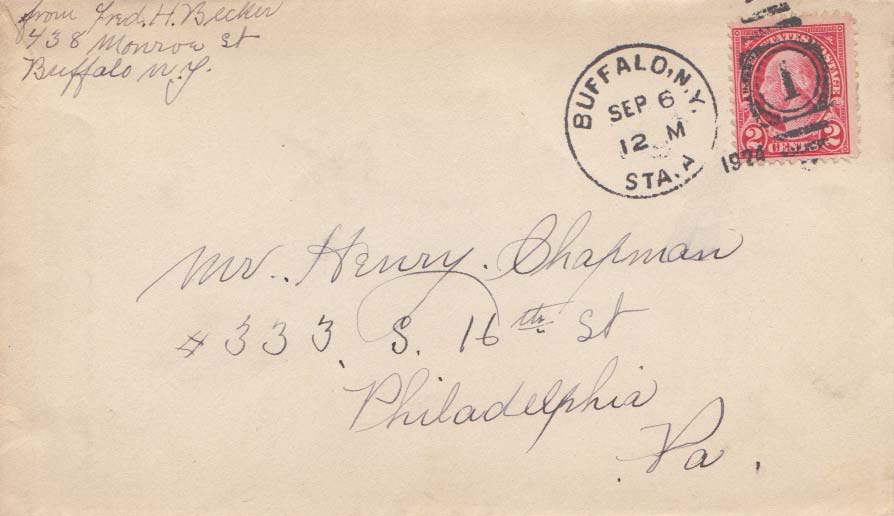 from Fred. H. Becker
438 Monroe St
Buffalo N.Y.
BUFFALO, N.Y.
SEP 6
12 M
STA. A
1924
1
STATES POSTAGE
2 CENTS 2
Mr. Henry. Chapman
# 333 S. 16th St
Philadelphia
Pa.